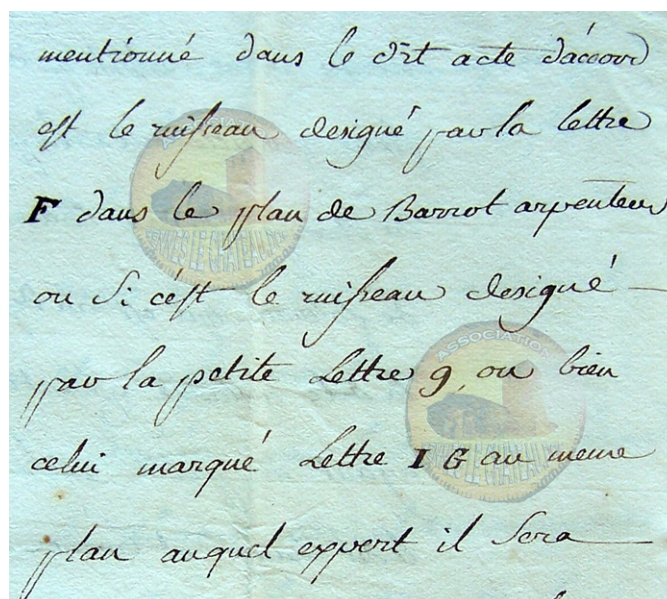 mentionné dans le dit acte d'accord
est le ruisseau designé par la lettre
F dans le plan de Barrot arpenteur
ou Si c'est le ruisseau designé -
par la petite Lettre g, ou bien
celui marqué Lettre I G au meme
plan auquel expert il Sera
ASSOCIATION
RENNES LE CHATEAU.DOC
ASSOCIATION
RENNES LE CHATEAU.DOC